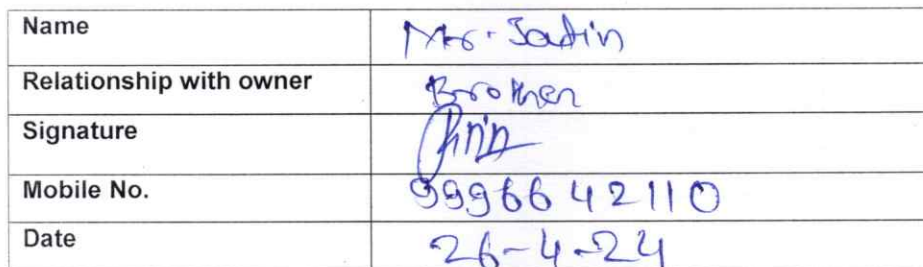 Name Mr. Jatin
Relationship with owner Brother
Signature
Mobile No. 9996642110
Date 26-4-24